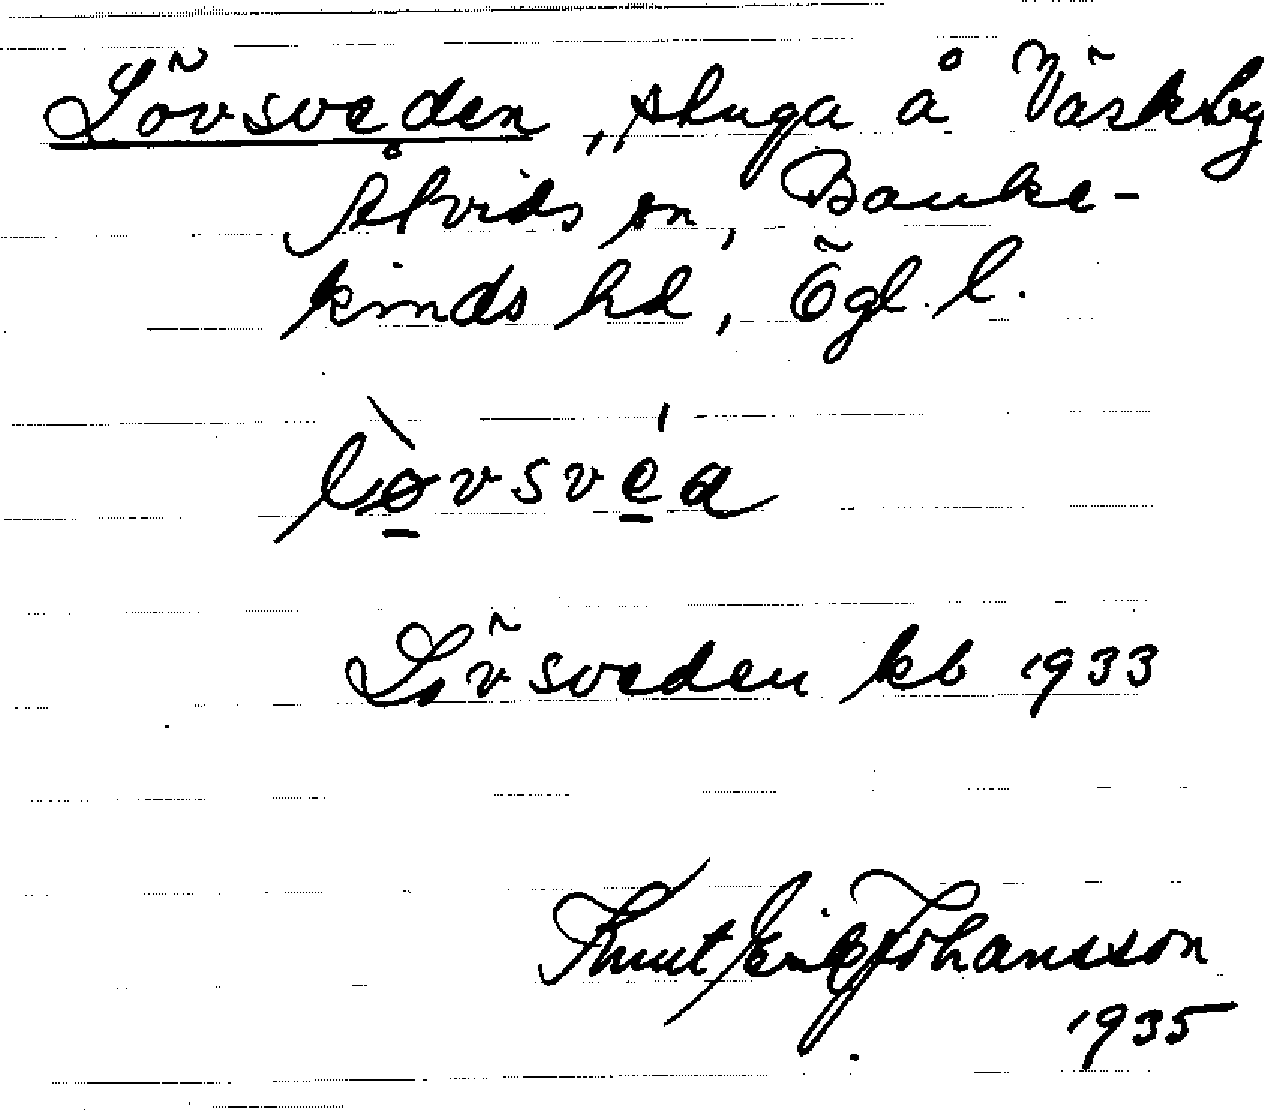 Lövsveden, stuga å Väskeby
Åtvids sn, Banke-
kinds hd, Ögl. l.
lø̀vsvéa
Lövsveden kb 1933
Knut Eric Johansson
1935